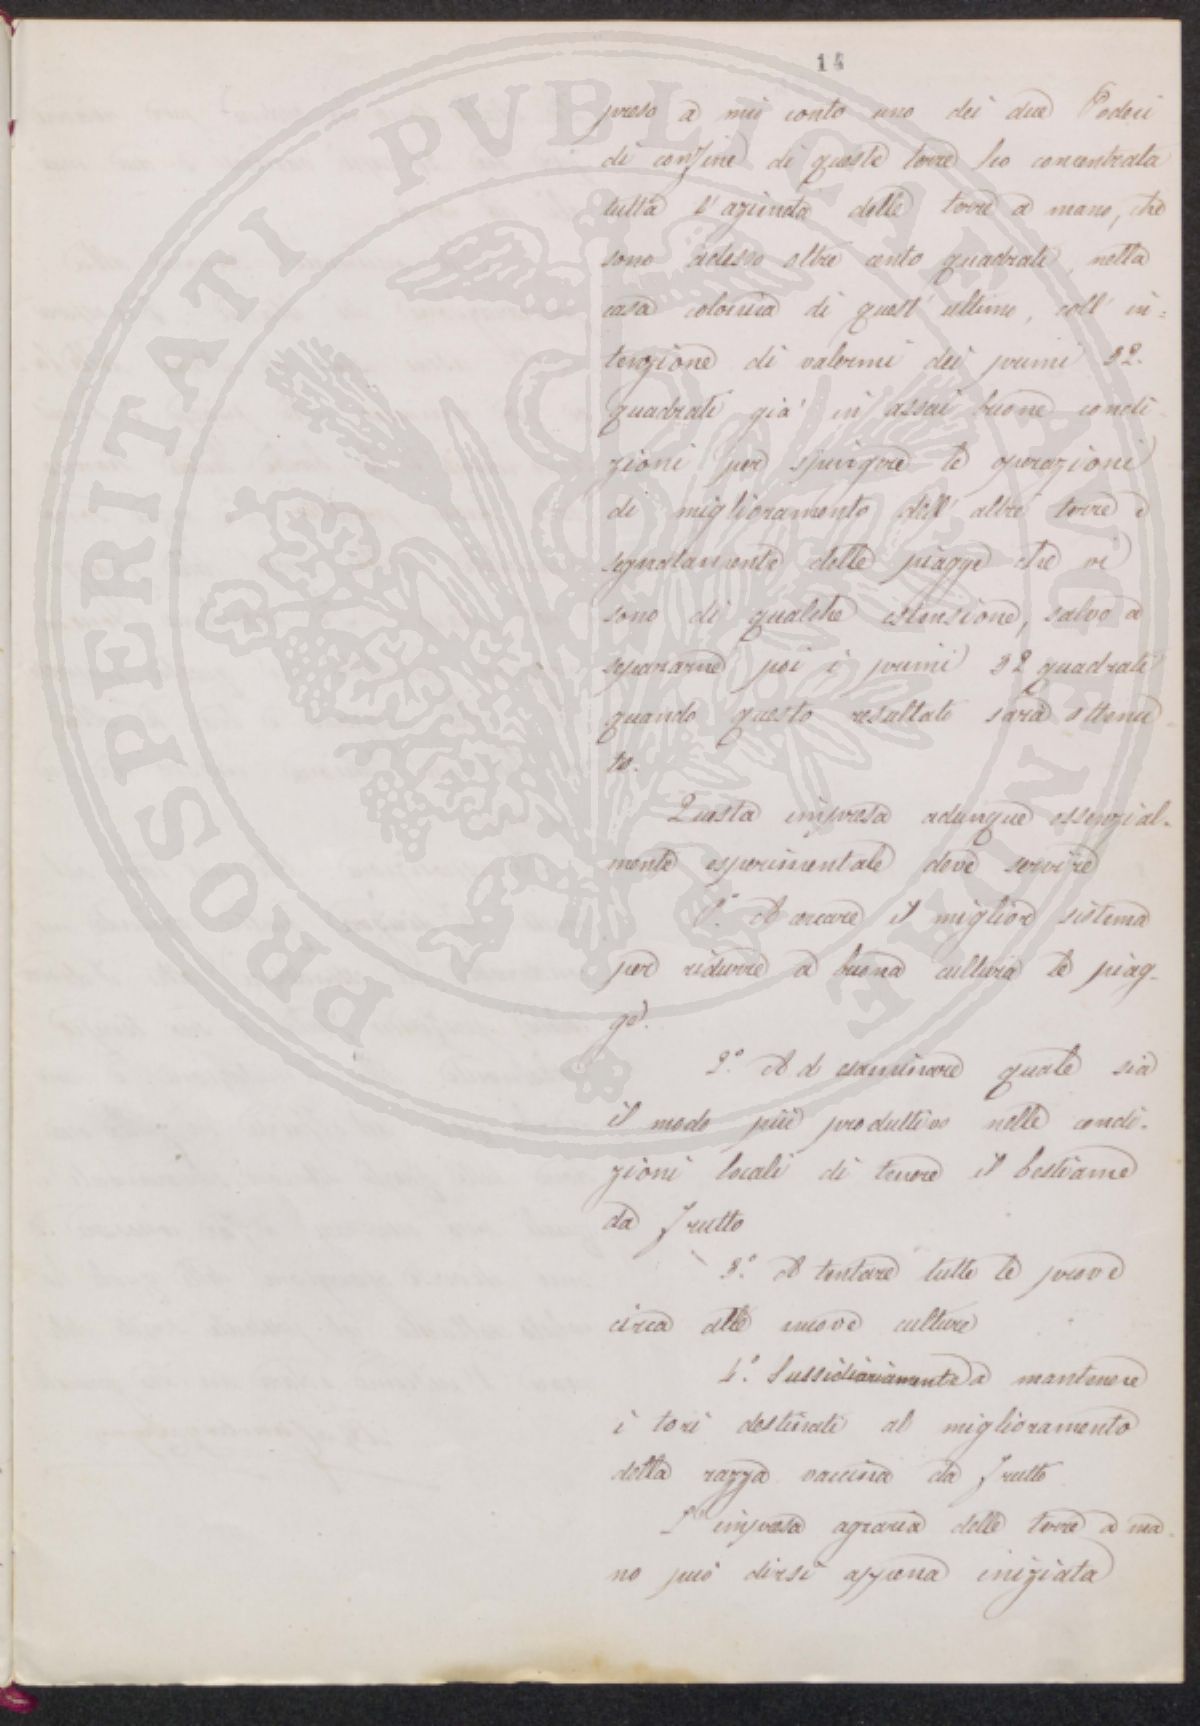 14
preso a mio conto uno dei due Poderi
di confine di queste terre ho concentrata
tutta l'azienda delle terre a mano, che
sono adesso oltre cento quadrati, nella
casa colonica di quest'ultimo, coll'in=
tenzione di valermi dei primi 32.
quadrati già in assai buone condi
zioni per spingere le operazioni
di miglioramento dell'altre terre e
segnatamente delle piagge che vi
sono di qualche estensione, salvo a
separarne poi i primi 32 quadrati
quando questo resultato sarà ottenu
to.
Questa impresa adunque essenzial-
mente esperimentale deve servire
1.° A cercare il miglior sistema
per ridurre a buona cultura le piag-
ge.
2.° Ad esaminare quale sia
il modo più produttivo nelle condi-
zioni locali di tenere il bestiame
da frutto
3.° A tentare tutte le prove
circa alle nuove culture
4.° Sussidiariamente a mantenere
i tori destinati al miglioramento
della razza vaccina da frutto
L'impresa agraria delle terre a ma
no può dirsi appena iniziata
PROSPERITATI PVBLICAE AVGENDAE